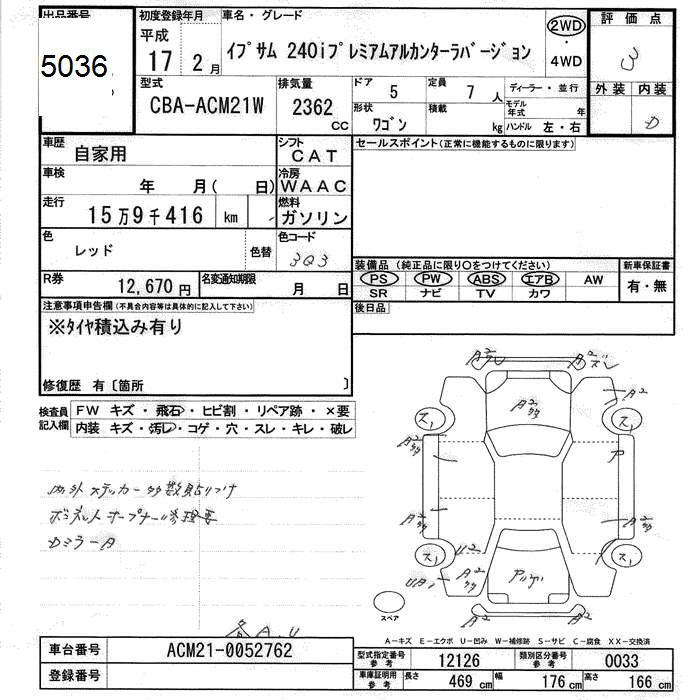 出品番号
5036
初度登録年月
平成
17 2月
車名・グレード
イプサム 240iプレミアムアルカンターラバージョン
2WD
・
4WD
評価点
3
外装 内装
D
型式
CBA-ACM21W
排気量
2362
CC
ドア
5
定員
7人
形状
ワゴン
積載
kg
ディーラー・並行
モデル年式 年
ハンドル 左・右
車歴
自家用
シフト
CAT
車検
年 月( 日)
冷房
WAAC
走行
15万9千416 km
燃料
ガソリン
色
レッド
色替
色コード
3Q3
R券
12,670円
名変通知期限
月 日
セールスポイント(正常に機能するものに限ります)
装備品 (純正品に限り○をつけてください)
PS PW ABS エアB AW
SR ナビ TV カワ
新車保証書
有・無
後日品
注意事項申告欄(不具合内容等は具体的に記入して下さい)
※タイヤ積込み有り
修復歴 有〔箇所 〕
検査員記入欄
FW キズ・飛石・ヒビ割・リペア跡・×要
内装 キズ・汚レ・コゲ・穴・スレ・キレ・破レ
内外ステッカー多数貼りつけ
Dミラー A
A2
A2 ズレ
A2
ス1
ス1
A2
ア
A2
A2
ス1
ス1
U2
UA1
A2
A2
A2
スペア
各A.U
A-キズ E-エクボ U-凹み W-補修跡 S-サビ C-腐食 XX-交換済
車台番号
ACM21-0052762
登録番号
型式指定番号 参考
12126
類別区分番号 参考
0033
車庫証明用 参考
長さ 469 cm
幅 176 cm
高さ 166 cm